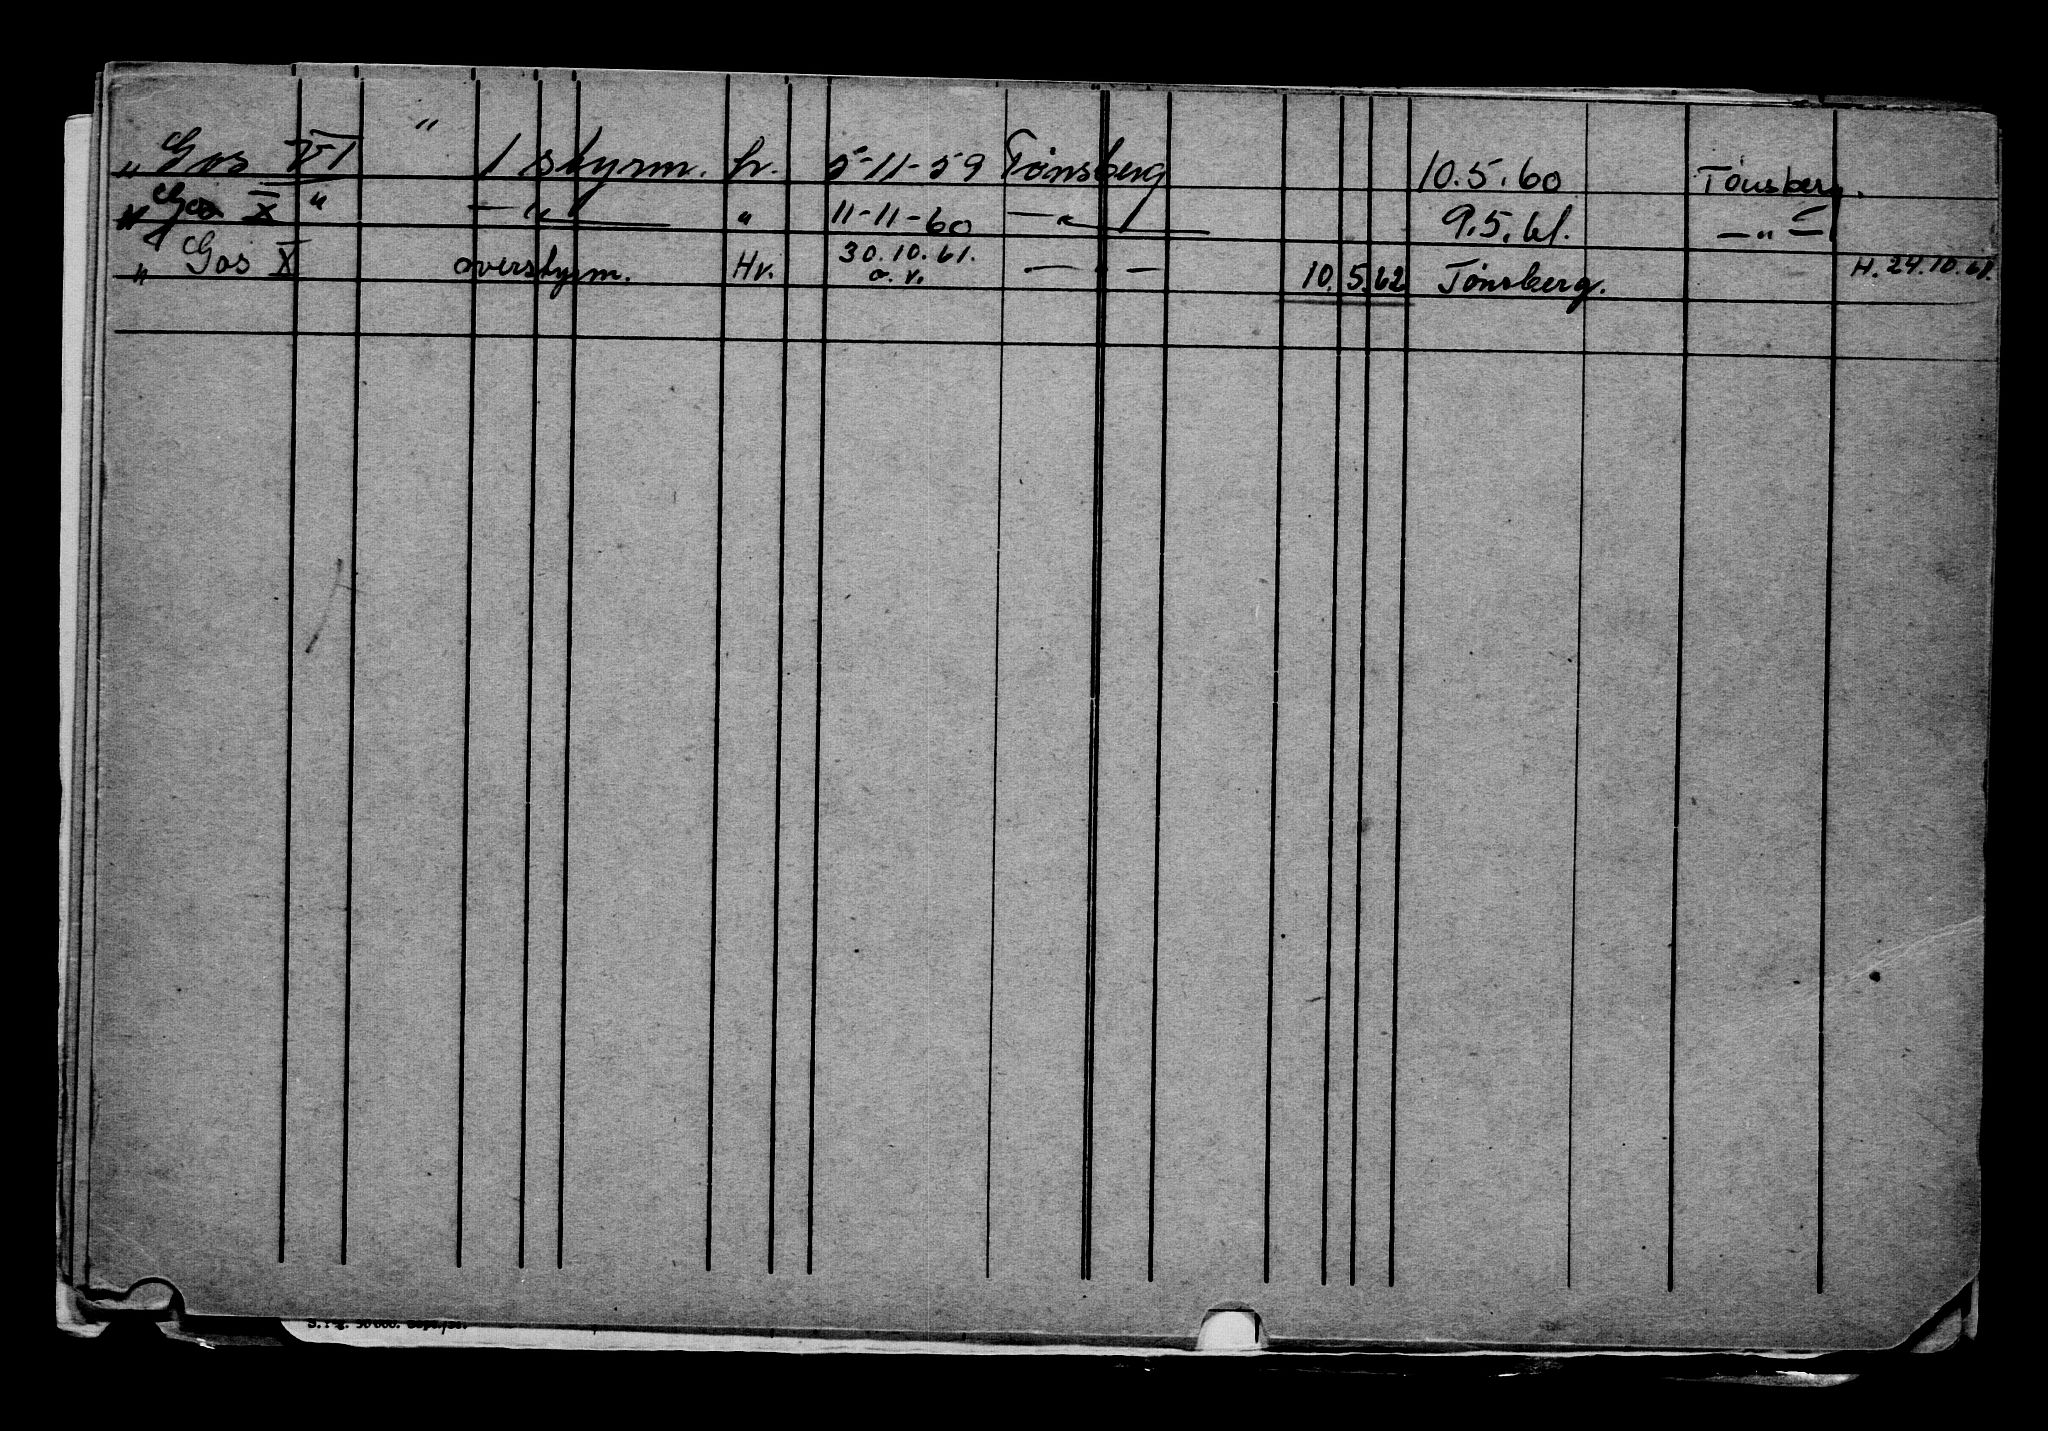 "
" Gos VI 1 styrm. hv. 5-11-59 Tønsberg 10.5.60 Tønsberg.
" Gos X " — " — " 11-11-60 — " — 9.5.61. — " —
" Gos X overstyrm. Hv. 30.10.61. — " — 10.5.62 Tønsberg. H. 24.10.61.
o.v.